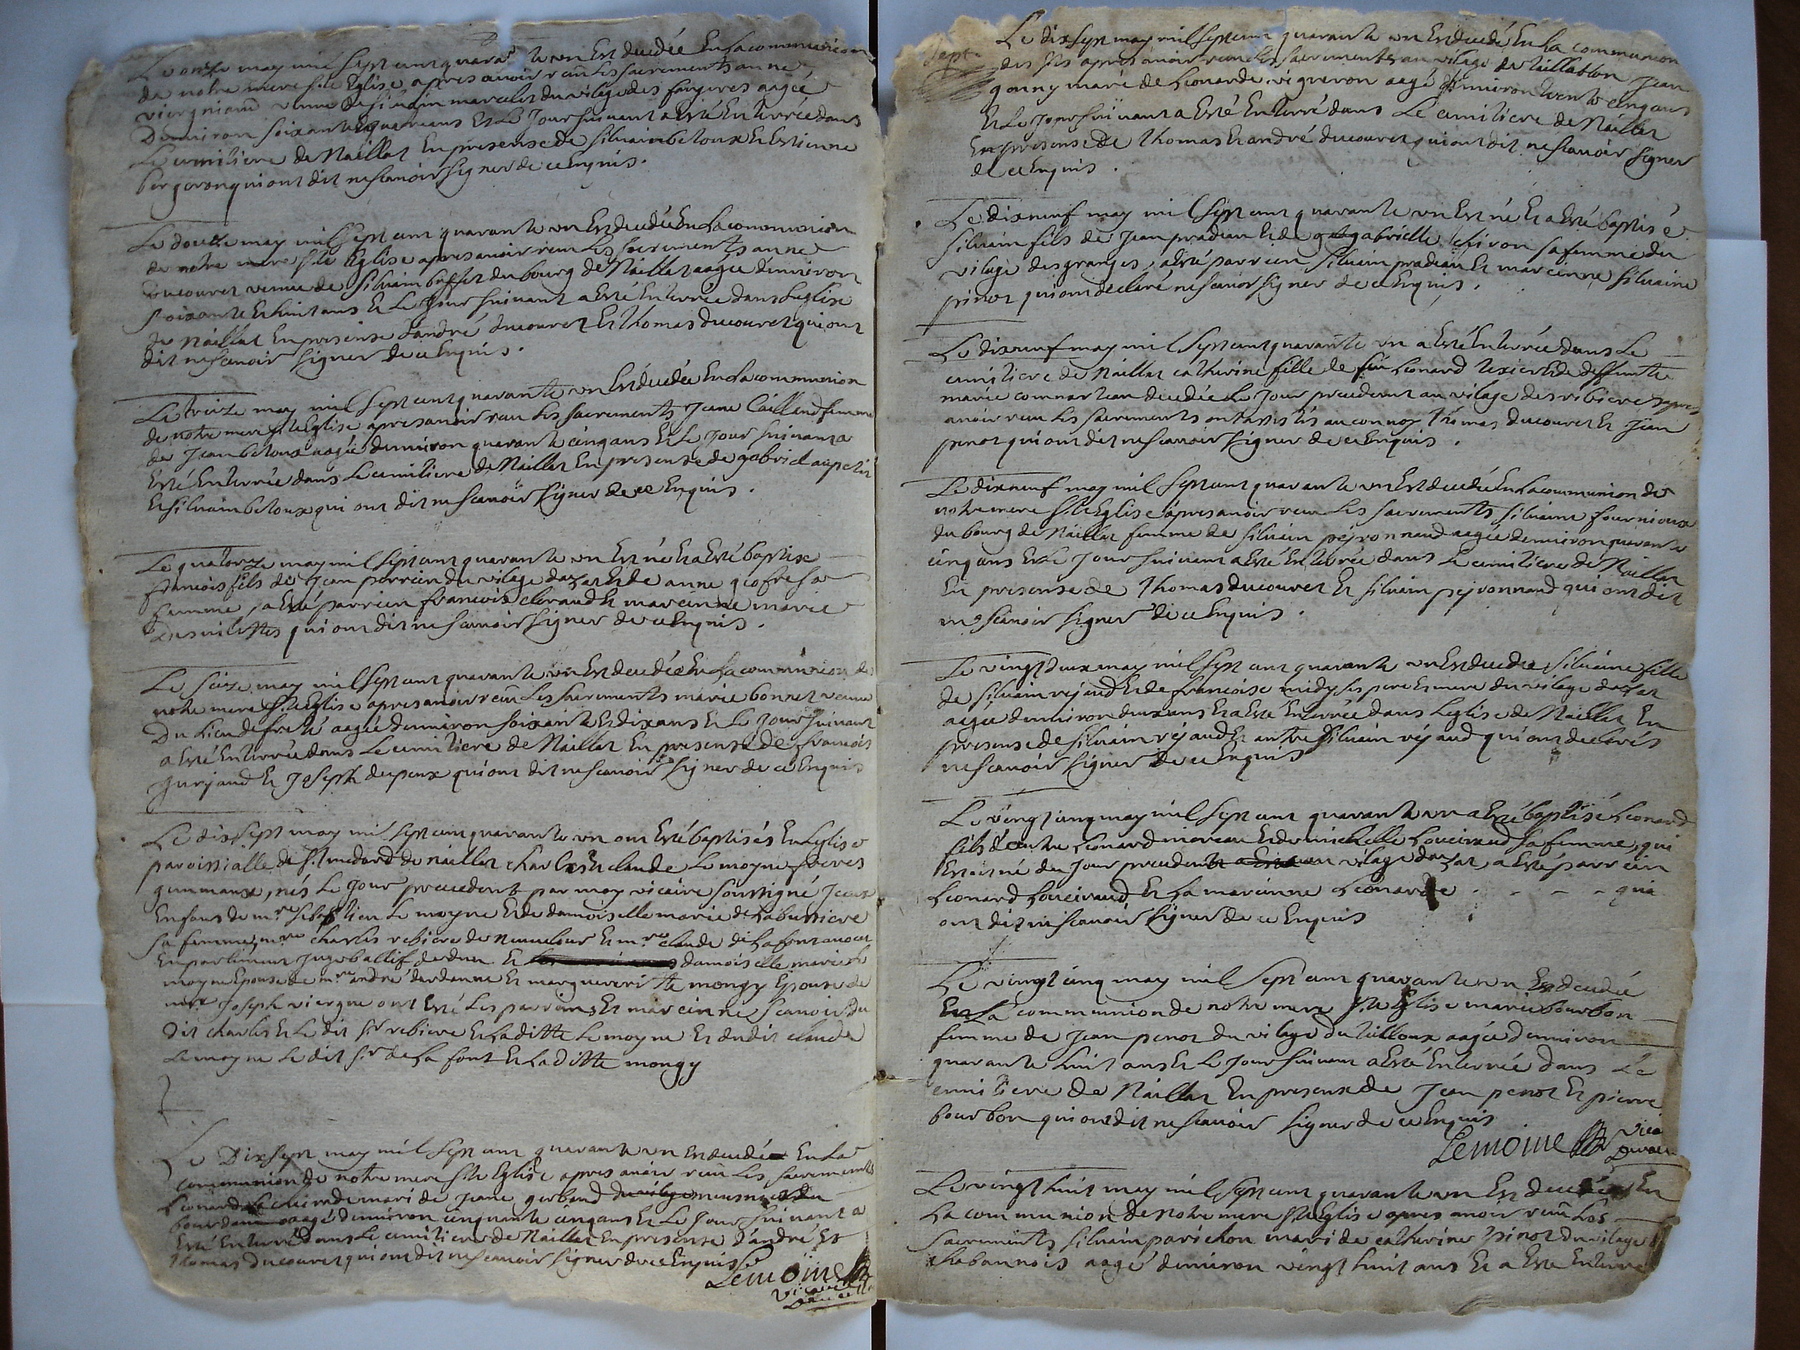 Le onze may mil sept cent quarante un est decedée en la communion
de notre mere ste Eglise apres avoir recu les sacrements anne
viergniaud veuve de silvain marcelot du vilage des fougeres aagée
Denviron soixante quatre ans et le jour suivant a esté enterrée dans
Le cimitiere de Naillat en presense de silvain betoux et estienne
bergeron qui ont dit ne scavoir signer de ce enquis.
Le douze may mil sept cent quarante un est decedée en la communion
de notre mere ste Eglise apres avoir recu les sacrements anne
ducouret veuve de silvain buffet du bourg de Naillat aagée denviron
soixante et huit ans et le jour suivant a esté enterrée dans leglise
de Naillat en presense dandré ducouret et thomas ducouret qui ont
dit ne scavoir signer de ce enquis.
Le treize may mil sept cent quarante un est decedée en la communion
de notre mere ste Eglise apres avoir recu les sacrements Jeane Caillaud femme
de Jean betoux aagée denviron quarante cinq ans et le jour suivant a
esté enterrée dans le cimitiere de Naillat en presense de gabriel aupetit
et silvain betoux qui ont dit ne scavoir signer de ce enquis.
Le quatorze may mil sept cent quarante un est né et a esté baptisé
francois fils de Jean perrein du vilage dazat et de anne giofre sa
femme, a esté parrein francois cleraud et mareinne marie
qui ont dit ne scavoir signer de ce enquis.
Le seize may mil sept cent quarante un est decedée en la communion de
notre mere ste Eglise apres avoir recu les sacrements marie bonnet veuve
Du lieu de freté aagée denviron soixante et dix ans et le jour suivant
a esté enterrée dans le cimitiere de Naillat en presense de francois
gurjaud et Joseph depeux qui ont dit ne scavoir signer de ce enquis
Le dix sept may mil sept cent quarante un ont esté baptisés en leglise
paroissialle de st medard de naillat charles et claude Lemoyne freres
gumeaux, nés le jour precedent par moy vicaire soussigné Jceux
enfans de mre sebastien Le moyne et de damoiselle marie de la bussiere
sa femme, mre charles rebiere de et mre claude de la font avocat
en parlement juge ballif de dun et damoiselle marie le
moyne epouse de mre andré dardanne et margueritte mongy epouse de
mre Joseph viergne ont esté les parreins et mareinnes scavoir du
dit charles et le dit sr rebiere et la ditte Lemoyne et du dit claude
Lemoyne le dit sr de la font et la ditte mongy
Le Dix sept may mil sept cent quarante un est decedé en la
communion de notre mere ste Eglise apres avoir recu les sacrements
Leonard mari de Jeane gerbaud meusnier du
aagé denviron cinquante cinq ans et le jour suivant a
esté enterré dans le cimitiere de Naillat en presense dandré et
thomas ducouret qui ont dit ne scavoir signer de ce enquis
Lemoine
vicaire
Le dix sept may mil sept cent quarante un est decedé en la communion
des fils apres avoir recu les sacrements au vilage de Jean
gonny mari de Leonarde vigneron aagé denviron trente cinq ans
et le jour suivant a esté enterré dans Le cimitiere de Naillat
En presense de thomas et andré ducouret qui ont dit ne scavoir signer
de ce enquis.
Le dix neuf may mil sept cent quarante un est né et a esté baptisé
silvain fils de Jean pradeau et de gabrielle chiron sa femme du
vilage des granges, a esté parrein silvain pradeau et mareinne silvaine
pinot qui ont declaré ne scavoir signer de ce enquis.
Le dix neuf may mil sept cent quarante un a esté enterrée dans Le
cimitiere de Naillat catherine fille de feu Leonard texier et de deffunte
marie decedée le jour precedent au vilage des ribieres apres
avoir recu les sacrements ont assistés au convoy thomas ducouret et Jean
penot qui ont dit ne scavoir signer de ce enquis.
Le dix neuf may mil sept cent quarante un est decedée en la communion de
notre mere ste Eglise apres avoir recu les sacrements silvaine fournioux
du bourg de Naillat femme de silvain peyronnaud aagée denviron quarante
cinq ans et le jour suivant a esté enterrée dans le cimitiere de Naillat
En presense de thomas ducouret et silvain peyronnaud qui ont dit
ne scavoir signer de ce enquis.
Le vingt deux may mil sept cent quarante un est decedée silvaine fille
de silvain vejaud et de francoise midy ses pere et mere du vilage dazat
aagée denviron deux ans et a esté enterrée dans leglise de Naillat en
presense de silvain vejaud et autre silvain vejaud qui ont declarés
ne scavoir signer de ce enquis
Le vingt cinq may mil sept cent quarante un a esté baptisé Leonard
fils dautre Leonard moreau et de michelle sa femme, qui
est né du jour precedent au vilage dazat, a esté parrein
Leonard et la mareinne Leonarde - - - qui
ont dit ne scavoir signer de ce enquis
Le vingt cinq may mil sept cent quarante un est decedée
En la communion de notre mere ste Eglise marie bourbon
femme de Jean penot du vilage du tilloux aagée denviron
quarante huit ans et le jour suivant a esté enterrée dans Le
cimitiere de Naillat en presense de Jean penot et pierre
bourbon qui ont dit ne scavoir signer de ce enquis
Lemoine vicaire
Le vingt huit may mil sept cent quarante un est decedé en
La communion de notre mere ste Eglise apres avoir recu Les
sacrements silvain parichon mari de catherine pinot du vilage
chabannois aagé denviron vingt huit ans et a esté enterré